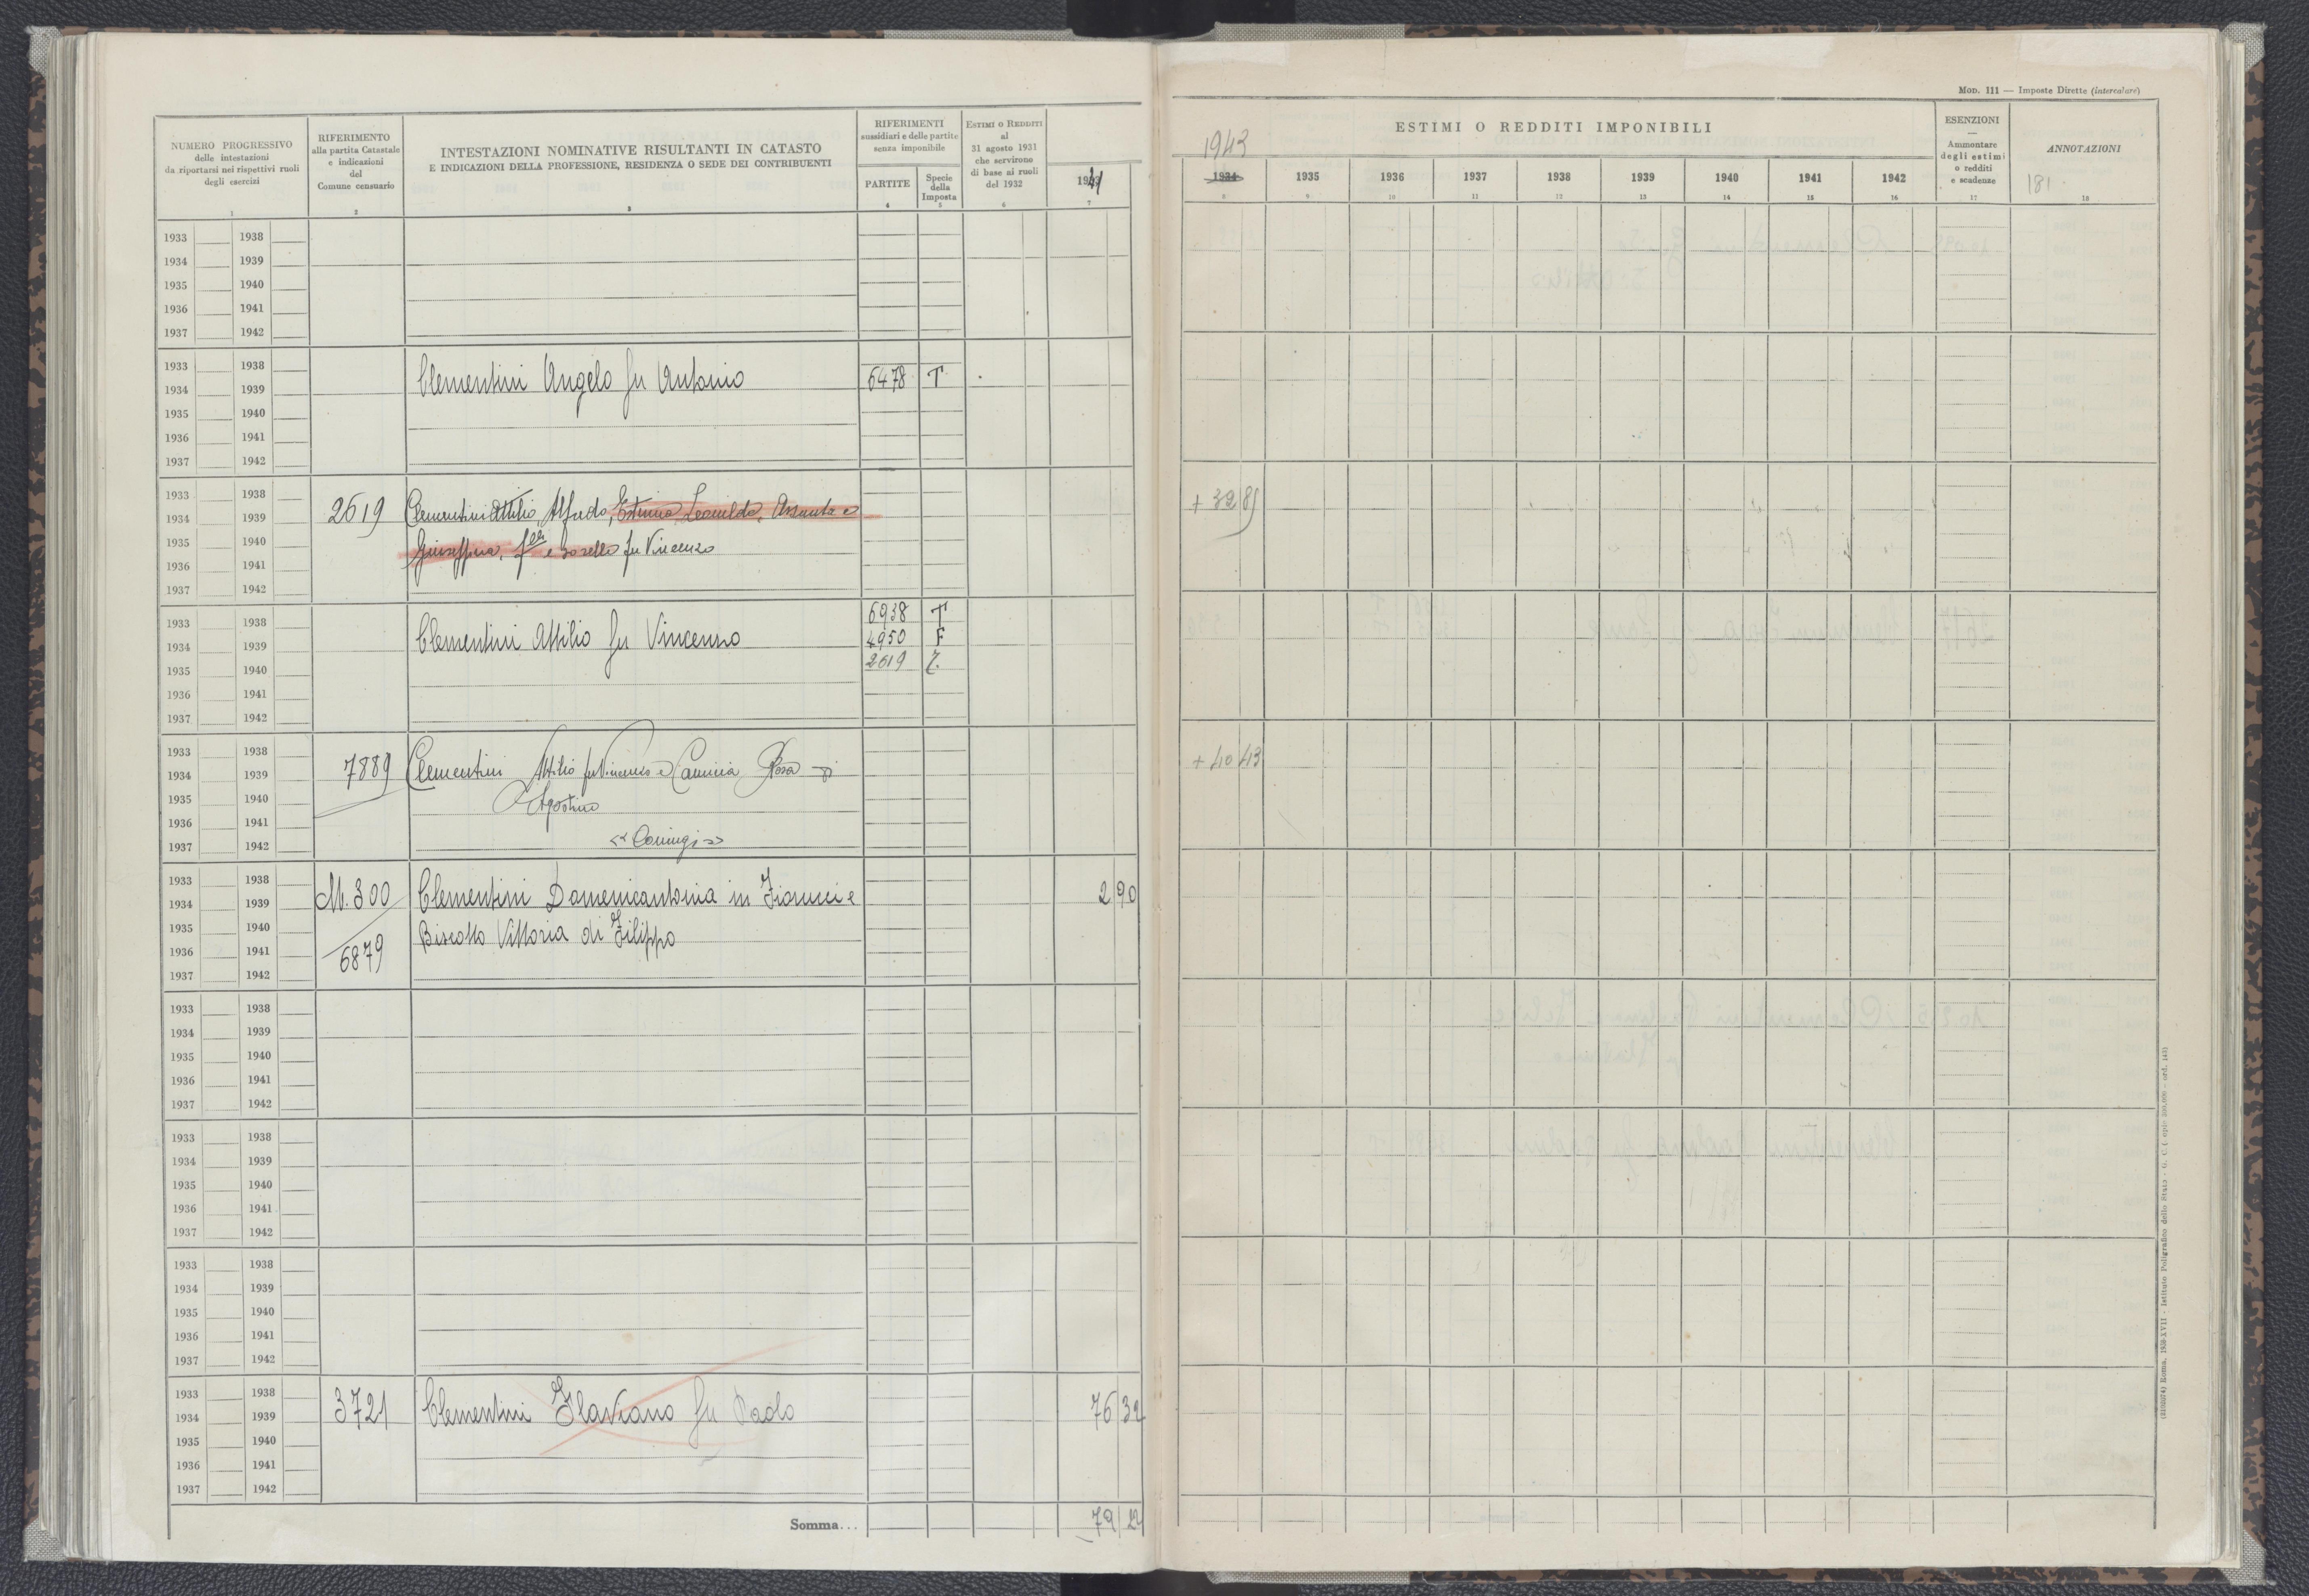 Mod. 111 — Imposte Dirette (intercalare)
NUMERO PROGRESSIVO
delle intestazioni
da riportarsi nei rispettivi ruoli
degli esercizi
1
RIFERIMENTO
alla partita Catastale
e indicazioni
del
Comune censuario
2
INTESTAZIONI NOMINATIVE RISULTANTI IN CATASTO
E INDICAZIONI DELLA PROFESSIONE, RESIDENZA O SEDE DEI CONTRIBUENTI
3
RIFERIMENTI
sussidiari e delle partite
senza imponibile
PARTITE
4
Specie
della
Imposta
5
Estimi o Redditi
al
31 agosto 1931
che servirono
di base ai ruoli
del 1932
6
7
ESTIMI O REDDITI IMPONIBILI
1943
1934 1935 1936 1937 1938 1939 1940 1941 1942
8 9 10 11 12 13 14 15 16
ESENZIONI
—
Ammontare
degli estimi
o redditi
e scadenze
17
ANNOTAZIONI
181
18
1933 1938
1934 1939
1935 1940
1936 1941
1937 1942
1933 1938
Clementini Angelo fu Antonio 6478 T
1934 1939
1935 1940
1936 1941
1937 1942
1933 1938
2619 Clementini Attilio, Alfredo, Leonilda, Assunta e + 32 85
1934 1939
1935 1940
Giuseppina, f.lli e sorelle fu Vincenzo
1936 1941
1937 1942
6938 T
1933 1938
Clementini Attilio fu Vincenzo 4950 F
1934 1939
2619 T.
1935 1940
1936 1941
1937 1942
1933 1938
7889 Clementini Attilio fu Vincenzo e Rosa di + 40 43
1934 1939
1935 1940
Agostino
1936 1941
« Coniugi »
1937 1942
1933 1938
M. 300 Clementini Domenicantonia in Fiorucci e 2 90
1934 1939
1935 1940
Biscotto Vittoria di Filippo
1936 1941
6879
1937 1942
1933 1938
1934 1939
1935 1940
1936 1941
1937 1942
1933 1938
1934 1939
1935 1940
1936 1941
1937 1942
1933 1938
1934 1939
1935 1940
1936 1941
1937 1942
1933 1938
3721 Clementini Flaviano fu Paolo 76 32
1934 1939
1935 1940
1936 1941
1937 1942
Somma... 79 22